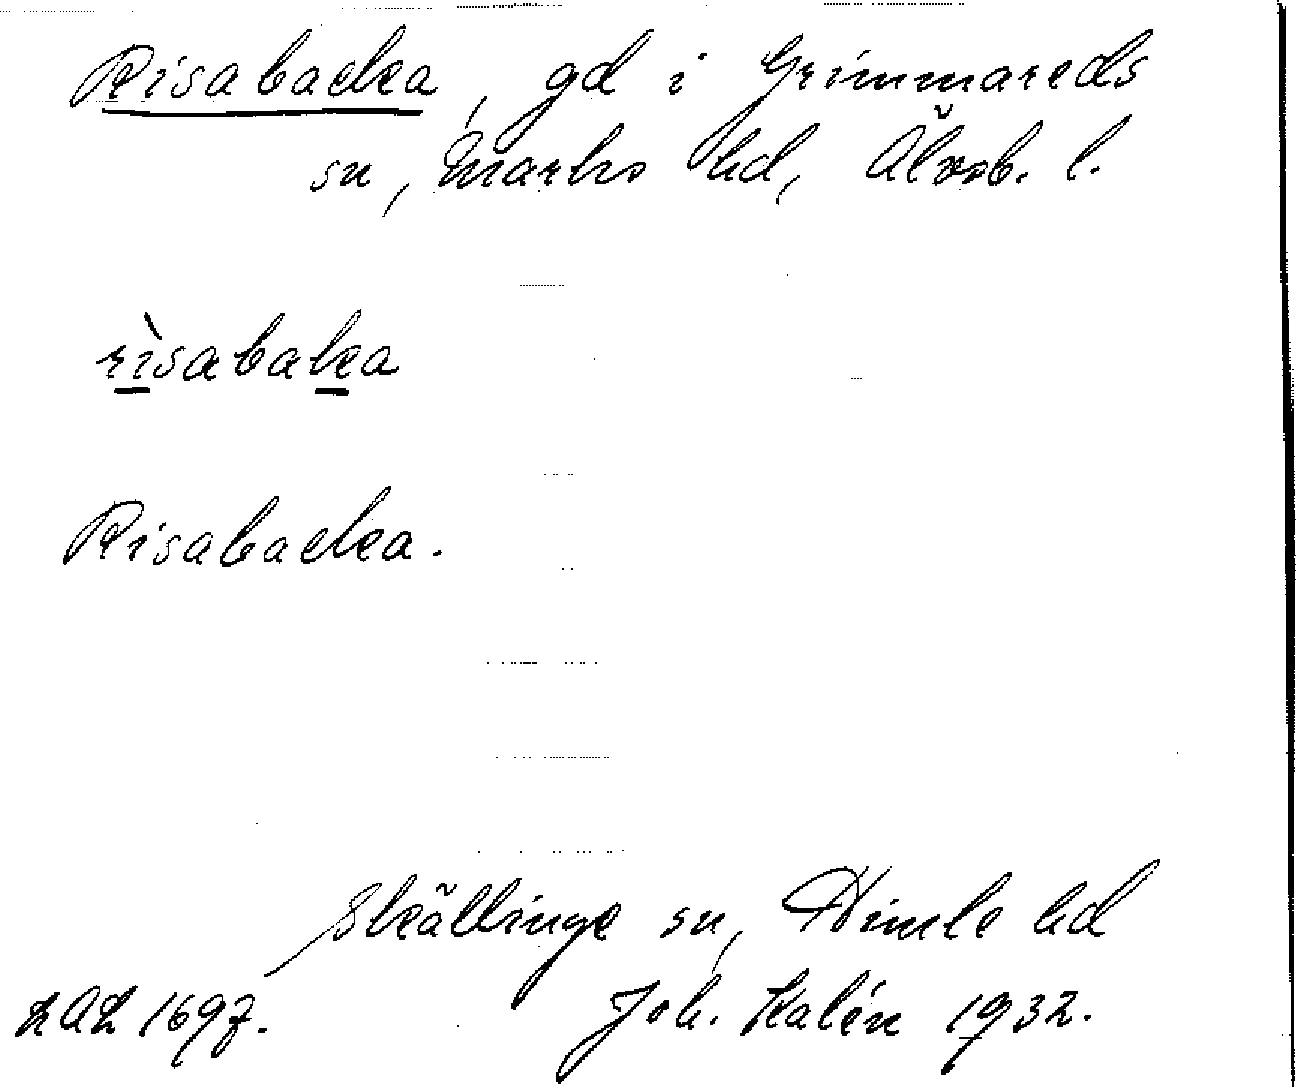 Risabacka, gd i Grimmareds
sn, Marks hd, Älvsb. l.
rìsabaka
Risabacka.
Skällinge sn, Himle hd
LAL 1697. Joh. Kalén 1932.